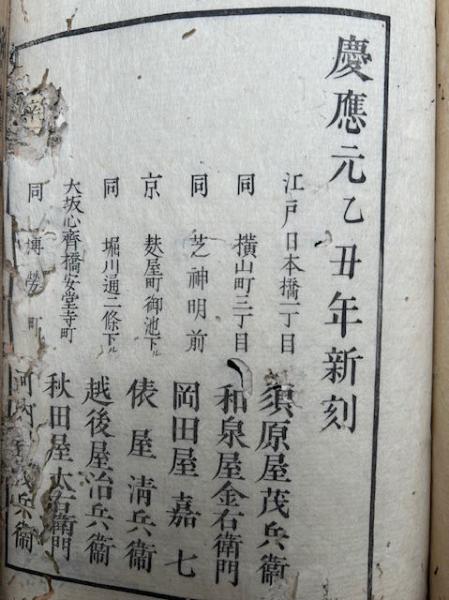 慶應元乙丑年新刻
江戸日本橋一丁目 須原屋茂兵衞
同 横山町三丁目 和泉屋金右衛門
同 芝神明前 岡田屋嘉七
京 麸屋町御池下ル 俵屋清兵衞
同 堀川通二條下ル 越後屋治兵衞
大坂心齋橋安堂寺町 秋田屋太右衛門
同 博労町 河内屋茂兵衞